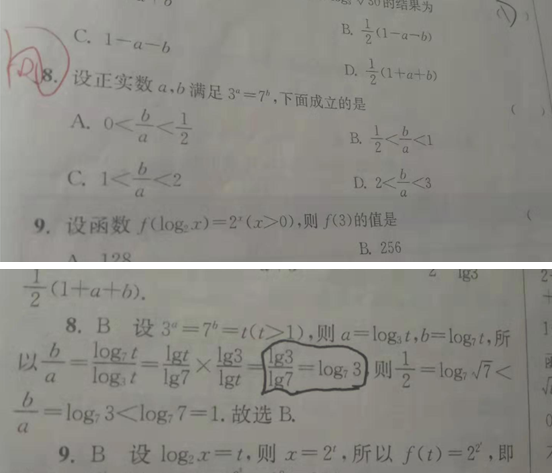 的结果为
C. 1－a－b
B. \frac{1}{2}(1－a－b)
D. \frac{1}{2}(1＋a＋b)
8. 设正实数 a,b 满足 3^a＝7^b,下面成立的是 (    )
A. 0<\frac{b}{a}<\frac{1}{2}
B. \frac{1}{2}<\frac{b}{a}<1
C. 1<\frac{b}{a}<2
D. 2<\frac{b}{a}<3
9. 设函数 f(log₂x)＝2^x(x>0),则 f(3)的值是 (
A. 128
B. 256
2 lg3
\frac{1}{2}(1＋a＋b).
8. B 设 3^a＝7^b＝t(t>1),则 a＝log₃t,b＝log₇t,所
以\frac{b}{a}＝\frac{log₇t}{log₃t}＝\frac{lgt}{lg7}×\frac{lg3}{lgt}＝\frac{lg3}{lg7}＝log₇3,则\frac{1}{2}＝log₇\sqrt{7}<
\frac{b}{a}＝log₇3<log₇7＝1. 故选 B.
9. B 设 log₂x＝t,则 x＝2^t,所以 f(t)＝2^{2^t},即